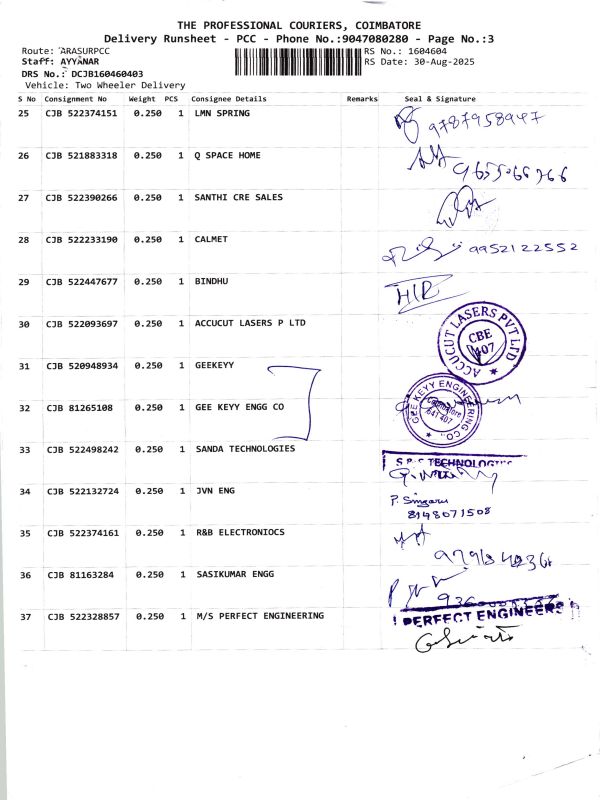 THE PROFESSIONAL COURIERS, COIMBATORE
Delivery Runsheet - PCC - Phone No.:9047080280 - Page No.:3
Route: ARASURPCC
RS No.: 1604604
Staff: AYYANAR
RS Date: 30-Aug-2025
DRS No.: DCJB160460403
Vehicle: Two Wheeler Delivery
S No Consignment No Weight PCS Consignee Details Remarks Seal & Signature
25 CJB 522374151 0.250 1 LMN SPRING 9787958947
26 CJB 521883318 0.250 1 Q SPACE HOME
27 CJB 522390266 0.250 1 SANTHI CRE SALES
28 CJB 522233190 0.250 1 CALMET 9952122552
29 CJB 522447677 0.250 1 BINDHU
30 CJB 522093697 0.250 1 ACCUCUT LASERS P LTD
ACCUCUT LASERS PVT LTD
CBE
407
31 CJB 520948934 0.250 1 GEEKEYY
32 CJB 81265108 0.250 1 GEE KEYY ENGG CO
GEE KEYY ENGINEERING CO.,
Coimbatore
641 407
33 CJB 522498242 0.250 1 SANDA TECHNOLOGIES
TECHNOLOGIES
34 CJB 522132724 0.250 1 JVN ENG
P. Singaru
8148071508
35 CJB 522374161 0.250 1 R&B ELECTRONIOCS
36 CJB 81163284 0.250 1 SASIKUMAR ENGG
37 CJB 522328857 0.250 1 M/S PERFECT ENGINEERING
PERFECT ENGINEERS